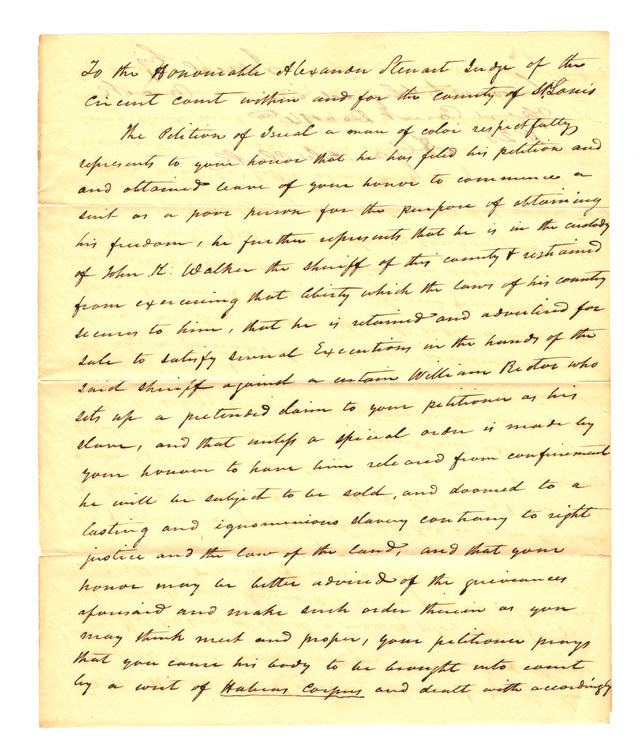 To the Honourable Alexander Stewart Judge of the
Circuit court within and for the county of St. Louis
The Petition of Isreal a man of color respectfully
represents to your honor that he has filed his petition and
and obtained leave of your honor to commence a
suit as a poor person for the purpose of obtaining
his freedom, he further represents that he is in the custody
of John K. Walker the sheriff of this county & restrained
from exercising that liberty which the laws of his country
secures to him, that he is retained and advertised for
sale to satisfy several Executions in the hands of the
said sheriff against a certain William Rector who
sets up a pretended claim to your petitioner as his
slave, and that unless a special order is made by
your honour to have him released from confinement
he will be subject to be sold, and doomed to a
lasting and ignominious slavery contrary to right
justice and the law of the land, and that your
honor may be better advised of the grievances
aforesaid and make such order therein as you
may think meet and proper, your petitioner prays
that you cause his body to be brought into court
by a writ of Habeas Corpus and dealt with accordingly